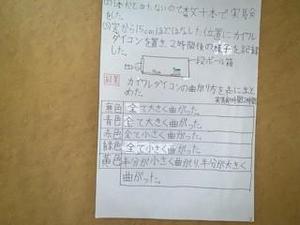 (2)1本だと分からないので数十本で実験
をした。
(3)窓から15cmほどはなした位置にカイワレ
ダイコンを置き、2時間後の様子を記録
した。
段ボール箱
結果
カイワレダイコンの曲がり方を表にまと
めた。
無色 全て大きく曲がった。
青色 全て大きく曲がった。
赤色 全て小さく曲がった。
緑色 全て小さく曲がった。
黄色 半分が小さく曲がり、半分が大きく
曲がった。